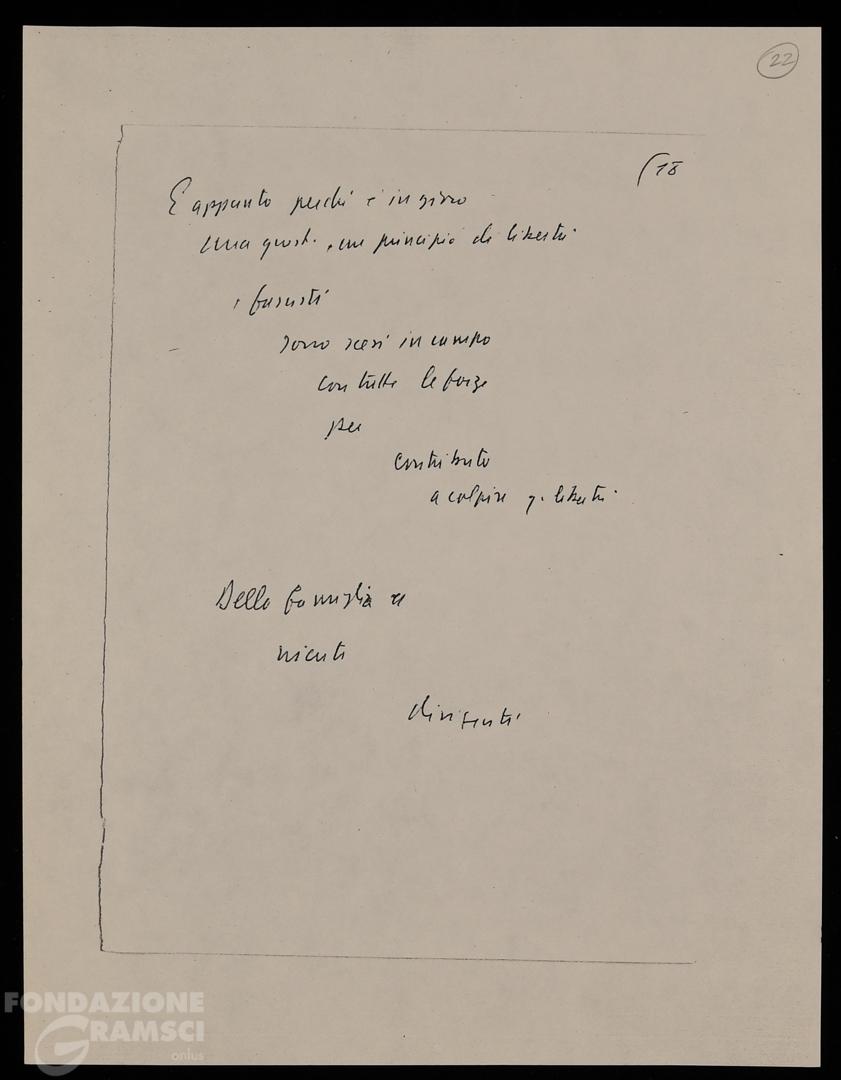 22
(18
E appunto perché è in gioco
una quest. , un principio di libertà
i fascisti
sono scesi in campo
con tutte le forze
per
contributo
a colpire q. libertà
Della famiglia
niente
dirigenti
FONDAZIONE
GRAMSCI
onlus